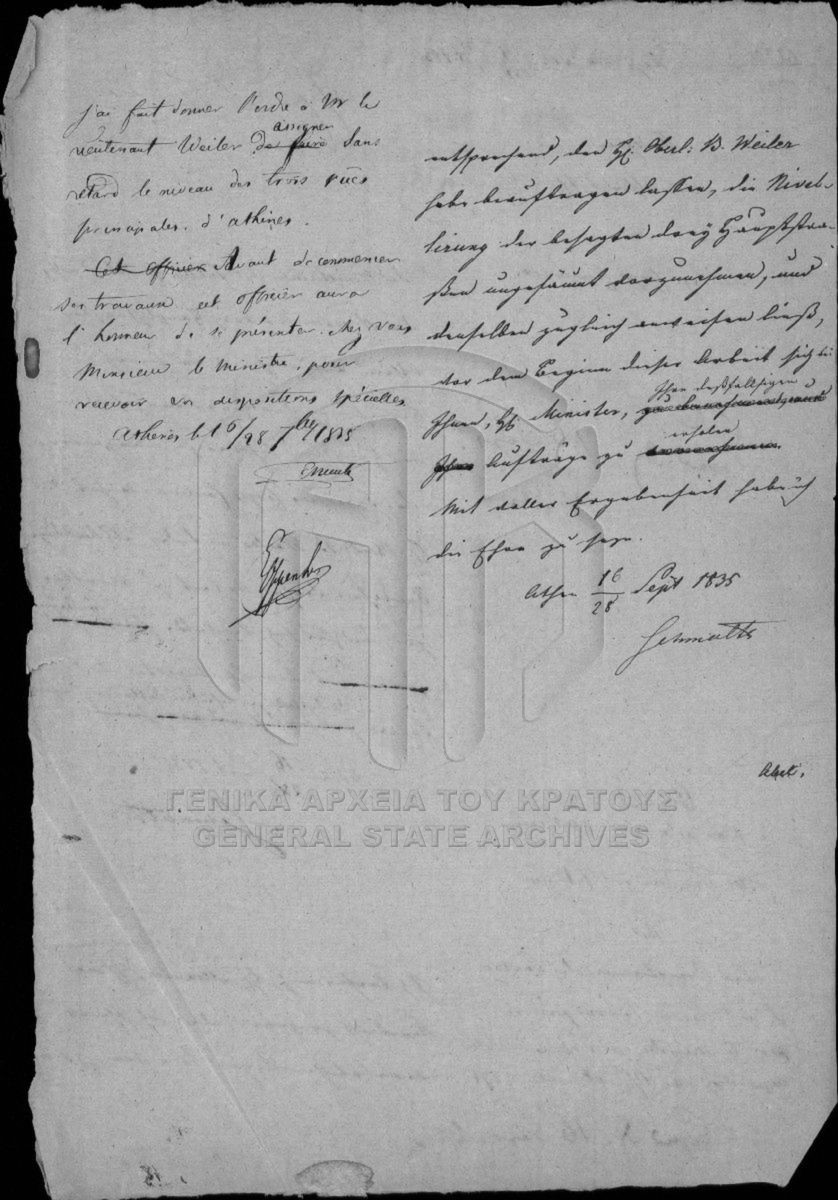 j'ai fait donner l'ordre à Mr le
lieutenant Weiler de faire assigner sans
retard le niveau des trois rues
principales d'athènes.
Cet officier Avant de commencer
ses travaux cet officier aura
l'honneur de se présenter chez vous
Monsieur le Ministre, pour
recevoir vos dispositions spécielles
Athènes le 16/28 7bre 1835
entsprechend, den H. Oberl: B. Weiler
habe beauftragen lassen, die Nivel-
lirung der besagten drey Hauptstra-
ßen ungesäumt vorzunehmen, und
denselben zugleich anweisen ließ,
vor dem Beginn dieser Arbeit sich bei
Ihnen, H. Minister, Ihre deßfallsigen
Aufträge zu erholen
Mit voller Ergebenheit habe ich
die Ehre zu seyn.
Athen 16/28 Sept 1835
Schmaltz
ΓΕΝΙΚΑ ΑΡΧΕΙΑ ΤΟΥ ΚΡΑΤΟΥΣ
GENERAL STATE ARCHIVES